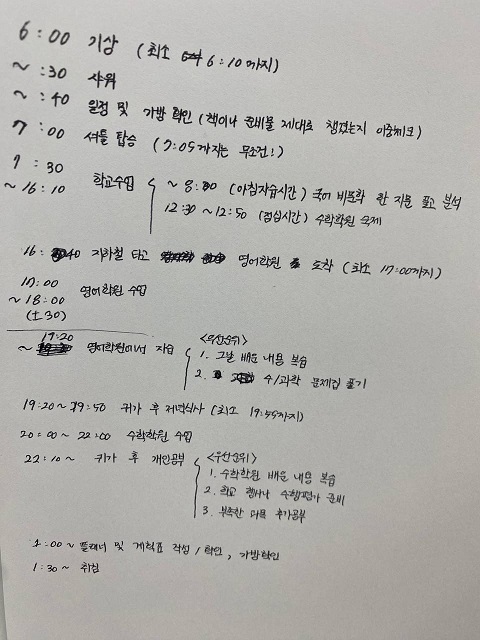 6:00 기상 (최소 6:10까지)
~:30 샤워
~:40 일정 및 가방 확인 (책이나 준비물 제대로 챙겼는지 이중체크)
7:00 셔틀 탑승 (7:05까지는 무조건!)
7:30
~16:10 학교수업
~8:00 (아침자습시간) 국어 비문학 한 지문 풀고 분석
12:30 ~12:50 (점심시간) 수학학원 숙제
16:40 지하철 타고 영어학원 도착 (최소 17:00까지)
17:00
~18:00 영어학원 수업
(±30)
19:20
~ 영어학원에서 자습
<우선순위>
1. 그날 배운 내용 복습
2. 수/과학 문제집 풀기
19:20~19:50 귀가 후 저녁식사 (최소 19:55까지)
20:00~22:00 수학학원 수업
22:10~ 귀가 후 개인공부
<우선순위>
1. 수학학원 배운 내용 복습
2. 학교 행사나 수행평가 준비
3. 부족한 과목 추가공부
1:00~ 플래너 및 계획표 작성/확인, 가방확인
1:30~ 취침